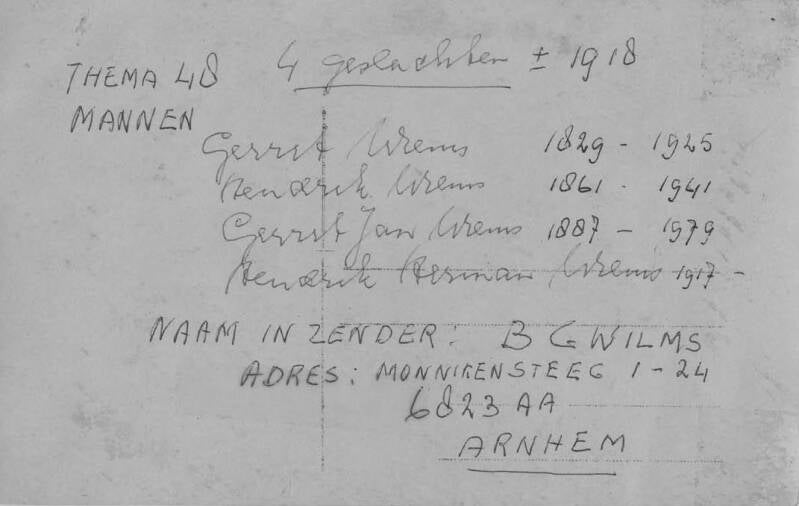 THEMA 48
MANNEN
4 geslachten ± 1918
Gerrit Wrems 1829 - 1925
Hendrik Wrems 1861 - 1941
Gerrit Jan Wrems 1887 - 1979
Hendrik Herman Wrems 1917 -
NAAM INZENDER: B G WILMS
ADRES: MONNIKENSTEEG 1-24
6823 AA
ARNHEM